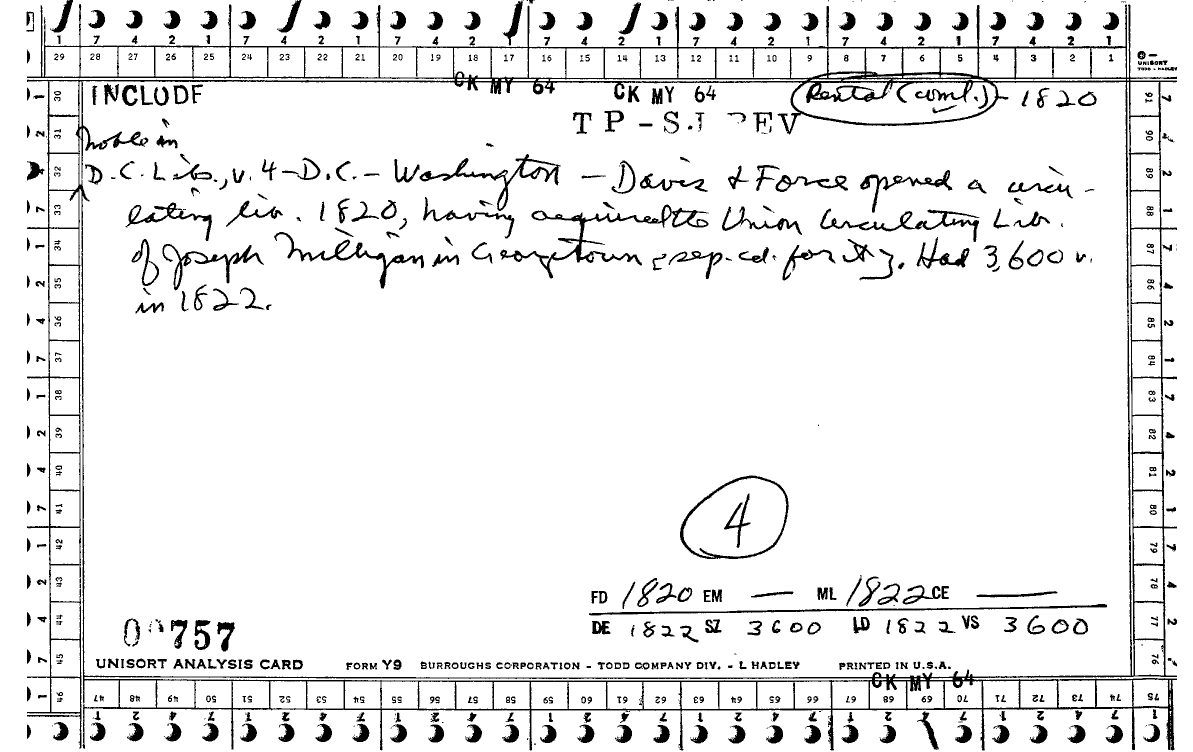 7 4 2 1 7 4 2 1 7 4 2 1 7 4 2 1 7 4 2 1 7 4 2 1 7 4 2 1
29 28 27 26 25 24 23 22 21 20 19 18 17 16 15 14 13 12 11 10 9 8 7 6 5 4 3 2 1
UNISORT
TODD - HADLEY
CK MY 64 CK MY 64
INCLUDE Rental (coml.) - 1820
TP-SJ REV
Noble in
D.C. Libs., v. 4 - D.C. - Washington - Davis & Force opened a circu-
lating lib. 1820, having acquired the Union Circulating Lib.
of Joseph Milligan in Georgetown [sep. cd. for it]. Had 3,600 v.
in 1822.
4
FD 1820 EM — ML 1822 CE —
DE 1822 SZ 3600 LD 1822 VS 3600
757
UNISORT ANALYSIS CARD FORM Y9 BURROUGHS CORPORATION - TODD COMPANY DIV. - L HADLEY PRINTED IN U.S.A.
CK MY 64
30 31 32 33 34 35 36 37 38 39 40 41 42 43 44 45 46
91 90 89 88 87 86 85 84 83 82 81 80 79 78 77 76
47 48 49 50 51 52 53 54 55 56 57 58 59 60 61 62 63 64 65 66 67 68 69 70 71 72 73 74 75